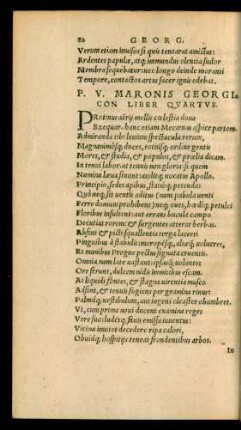 82 GEORG.
Verum etiam inuisos si quis tentarat amictus:
Ardentes papulæ, atq; immundus olentia sudor
Membra sequebatur: nec longo deinde moranti
Tempore, contactos artus sacer ignis edebat.
P. V. MARONIS GEORGI-
CON LIBER QVARTVS.
PRotinus aërij mellis cœlestia dona
Exequar. hanc etiam Mecœnas aspice partem.
Admiranda tibi leuium spectacula rerum,
Magnanimosq; duces, totiusq; ordine gentis
Mores, & studia, & populos, & prælia dicam.
In tenui labor: at tenuis non gloria: si quem
Numina læua sinunt: auditq; uocatus Apollo.
Principio, sedes apibus, statioq; petenda
Quò neq; sit uentis aditus (nam pabula uenti
Ferre domum prohibent) neq; oues, hœdiq; petulci
Floribus insultent: aut errans bucula campo
Decutiat rorem: & surgentes atterat herbas.
Absint & picti squallentia terga lacerti
Pinguibus à stabulis: meropesq;, aliæq; uolucres,
Et manibus Progne pectus signata cruentis.
Omnia nam late uastant: ipsasq; uolantes
Ore ferunt, dulcem nidis immitibus escam.
At liquidi fontes, & stagna uirentia musco
Adsint, & tenuis fugiens per gramina riuus:
Palmaq; uestibulum, aut ingens oleaster obumbret.
Vt, cum prima noui ducent examina reges
Vere suo: ludetq; fauis emissa iuuentus:
Vicina inuitet decedere ripa calori,
Obuiaq; hospitijs teneat frondentibus arbos.
In